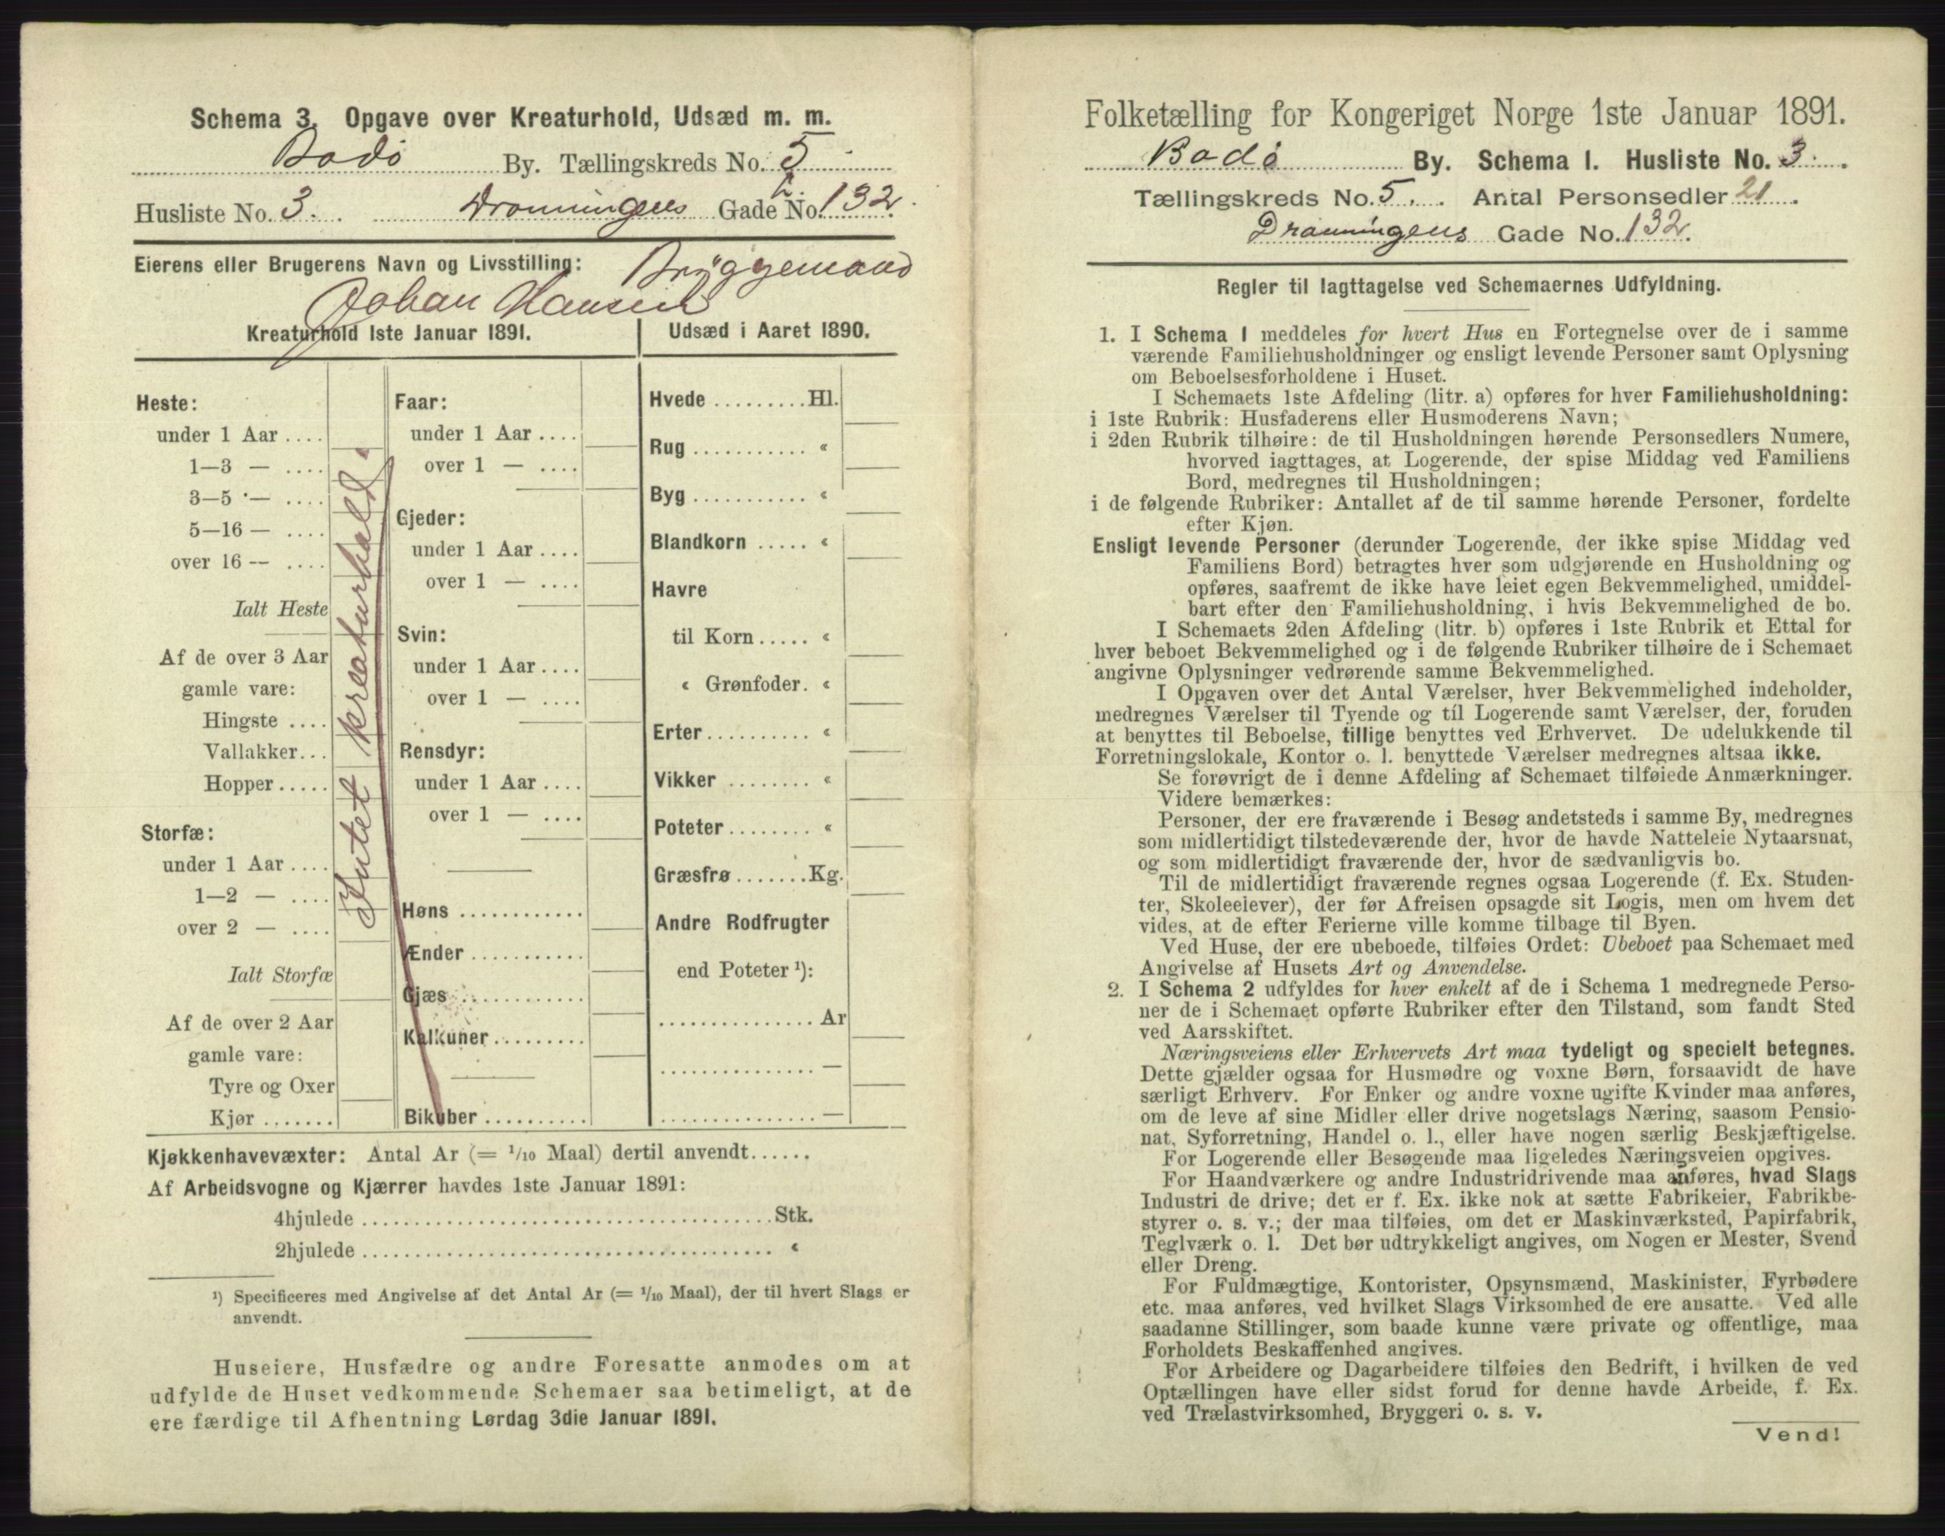 Schema 3. Opgave over Kreaturhold, Udsæd m. m.
Bodö By. Tællingskreds No. 5
Husliste No. 3. Dronningens Gade No. 132.
Eierens eller Brugerens Navn og Livsstilling: Bryggemand
Johan Hansen
Kreaturhold 1ste Januar 1891.
Heste:
under 1 Aar ....
1—3 — ....
3—5 — ....
5—16 — ....
over 16 — ....
Ialt Heste
Af de over 3 Aar
gamle vare:
Hingste ....
Vallakker...
Hopper.....
Storfæ:
under 1 Aar ....
1—2 — ....
over 2 — ....
Ialt Storfæ
Af de over 2 Aar
gamle vare:
Tyre og Oxer
Kjør .......
Intet kreaturhald.
Faar:
under 1 Aar ....
over 1 — ....
Gjeder:
under 1 Aar ....
over 1 — ....
Svin:
under 1 Aar ....
over 1 — ....
Rensdyr:
under 1 Aar ....
over 1 — ....
Høns ............
Ænder ...........
Gjæs ............
Kalkuner.........
Bikuber ..........
Udsæd i Aaret 1890.
Hvede .........Hl.
Rug ........... «
Byg ........... «
Blandkorn ..... «
Havre
til Korn ..... «
« Grønfoder. «
Erter.......... «
Vikker ........ «
Poteter ........ «
Græsfrø .......Kg.
Andre Rodfrugter
end Poteter ¹):
............... Ar
............... —
............... —
Kjøkkenhavevæxter: Antal Ar (= 1/10 Maal) dertil anvendt......
Af Arbeidsvogne og Kjærrer havdes 1ste Januar 1891:
4hjulede ........................................Stk.
2hjulede ........................................ «
¹) Specificeres med Angivelse af det Antal Ar (= 1/10 Maal), der til hvert Slags er
anvendt.
Huseiere, Husfædre og andre Foresatte anmodes om at
udfylde de Huset vedkommende Schemaer saa betimeligt, at de
ere færdige til Afhentning Lørdag 3die Januar 1891.
Folketælling for Kongeriget Norge 1ste Januar 1891.
Bodö By. Schema I. Husliste No. 3.
Tællingskreds No. 5. Antal Personsedler 21.
Dronningens Gade No. 132.
Regler til Iagttagelse ved Schemaernes Udfyldning.
1. I Schema 1 meddeles for hvert Hus en Fortegnelse over de i samme
værende Familiehusholdninger og ensligt levende Personer samt Oplysning
om Beboelsesforholdene i Huset.
I Schemaets 1ste Afdeling (litr. a) opføres for hver Familiehusholdning:
i 1ste Rubrik: Husfaderens eller Husmoderens Navn;
i 2den Rubrik tilhøire: de til Husholdningen hørende Personsedlers Numere,
hvorved iagttages, at Logerende, der spise Middag ved Familiens
Bord, medregnes til Husholdningen;
i de følgende Rubriker: Antallet af de til samme hørende Personer, fordelte
efter Kjøn.
Ensligt levende Personer (derunder Logerende, der ikke spise Middag ved
Familiens Bord) betragtes hver som udgjørende en Husholdning og
opføres, saafremt de ikke have leiet egen Bekvemmelighed, umiddel-
bart efter den Familiehusholdning, i hvis Bekvemmelighed de bo.
I Schemaets 2den Afdeling (litr. b) opføres i 1ste Rubrik et Ettal for
hver beboet Bekvemmelighed og i de følgende Rubriker tilhøire de i Schemaet
angivne Oplysninger vedrørende samme Bekvemmelighed.
I Opgaven over det Antal Værelser, hver Bekvemmelighed indeholder,
medregnes Værelser til Tyende og til Logerende samt Værelser, der, foruden
at benyttes til Beboelse, tillige benyttes ved Erhvervet. De udelukkende til
Forretningslokale, Kontor o. l. benyttede Værelser medregnes altsaa ikke.
Se forøvrigt de i denne Afdeling af Schemaet tilføiede Anmærkninger.
Videre bemærkes:
Personer, der ere fraværende i Besøg andetsteds i samme By, medregnes
som midlertidigt tilstedeværende der, hvor de havde Natteleie Nytaarsnat,
og som midlertidigt fraværende der, hvor de sædvanligvis bo.
Til de midlertidigt fraværende regnes ogsaa Logerende (f. Ex. Studen-
ter, Skoleeiever), der før Afreisen opsagde sit Logis, men om hvem det
vides, at de efter Ferierne ville komme tilbage til Byen.
Ved Huse, der ere ubeboede, tilføies Ordet: Ubeboet paa Schemaet med
Angivelse af Husets Art og Anvendelse.
2. I Schema 2 udfyldes for hver enkelt af de i Schema 1 medregnede Perso-
ner de i Schemaet opførte Rubriker efter den Tilstand, som fandt Sted
ved Aarsskiftet.
Næringsveiens eller Erhvervets Art maa tydeligt og specielt betegnes.
Dette gjælder ogsaa for Husmødre og voxne Børn, forsaavidt de have
særligt Erhverv. For Enker og andre voxne ugifte Kvinder maa anføres,
om de leve af sine Midler eller drive nogetslags Næring, saasom Pensio-
nat, Syforretning, Handel o. l., eller have nogen særlig Beskjæftigelse.
For Logerende eller Besøgende maa ligeledes Næringsveien opgives.
For Haandværkere og andre Industridrivende maa anføres, hvad Slags
Industri de drive; det er f. Ex. ikke nok at sætte Fabrikeier, Fabrikbe-
styrer o. s. v.; der maa tilføies, om det er Maskinværksted, Papirfabrik,
Teglværk o. l. Det bør udtrykkeligt angives, om Nogen er Mester, Svend
eller Dreng.
For Fuldmægtige, Kontorister, Opsynsmænd, Maskinister, Fyrbødere
etc. maa anføres, ved hvilket Slags Virksomhed de ere ansatte. Ved alle
saadanne Stillinger, som baade kunne være private og offentlige, maa
Forholdets Beskaffenhed angives.
For Arbeidere og Dagarbeidere tilføies den Bedrift, i hvilken de ved
Optællingen have eller sidst forud for denne havde Arbeide, f. Ex.
ved Trælastvirksomhed, Bryggeri o. s. v.
Vend!